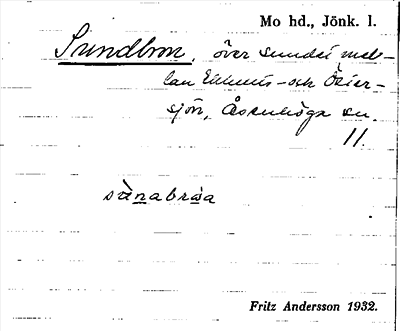 Mo hd., Jönk. l.
Sundbron, över sundet mel-
lan och
sjön, Åsenhöga sn.
11.
sànabrɷa
Fritz Andersson 1932.